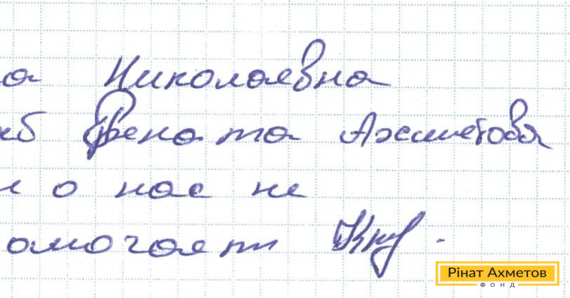 а Николаевна
Рената Ахметова
о нас не
омогает
Рінат Ахметов
ФОНД